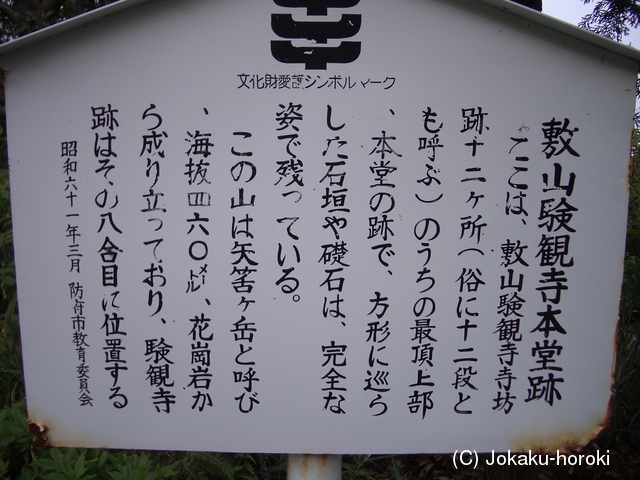 文化財愛護シンボルマーク
敷山験観寺本堂跡
ここは、敷山験観寺寺坊
跡十二ヶ所(俗に十二段と
も呼ぶ)のうちの最頂上部
、本堂の跡で、方形に巡ら
した石垣や礎石は、完全な
姿で残っている。
この山は矢筈ヶ岳と呼び
、海抜四六〇メートル、花崗岩か
ら成り立っており、験観寺
跡はその八合目に位置する
昭和六十一年三月 防府市教育委員会
(C) Jokaku-horoki